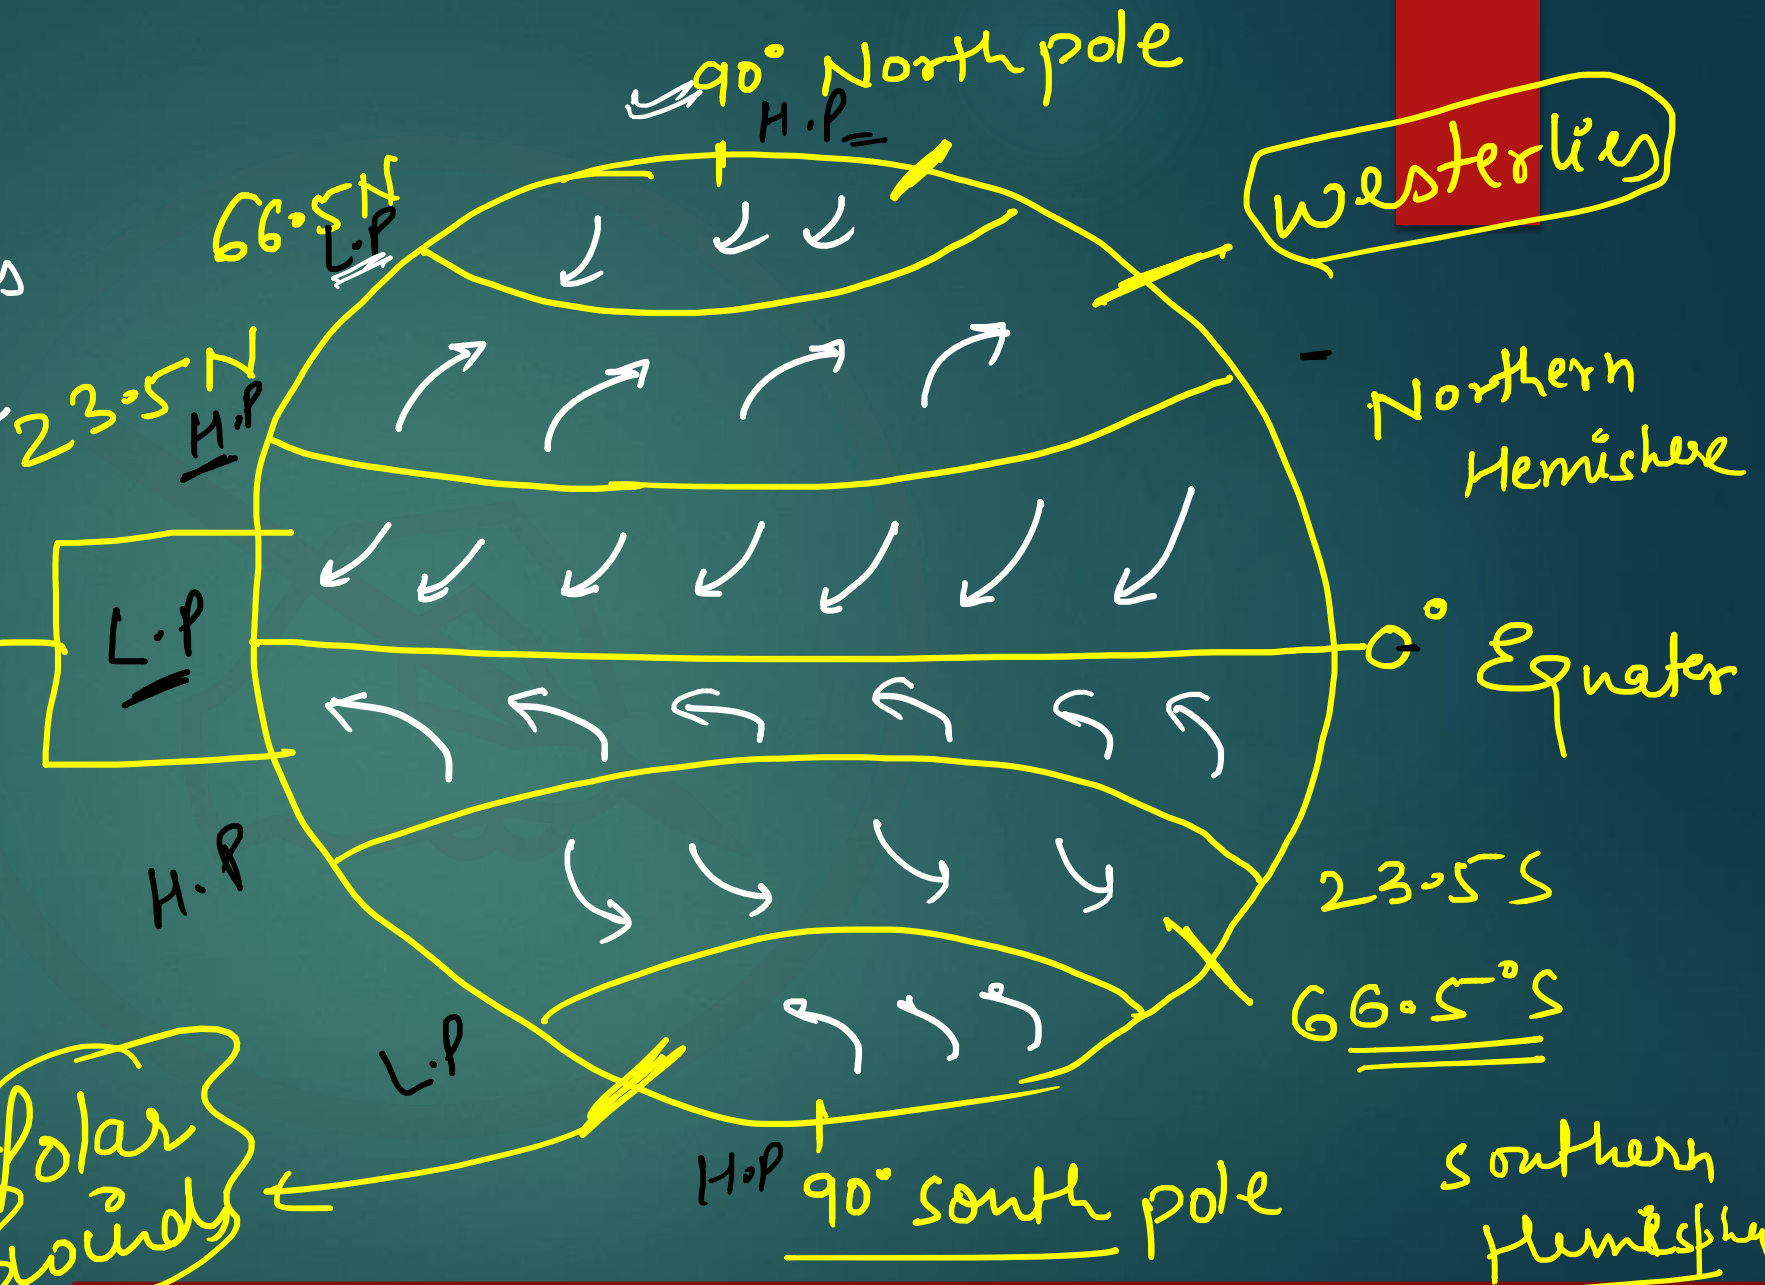 90° North pole
H.P
westerlies
66.5N
L.P
23.5N
H.P
Northern
Hemishere
L.P
0° Equater
H.P
23.5S
66.5°S
L.P
Polar
winds
H.P
90° south pole
Southern